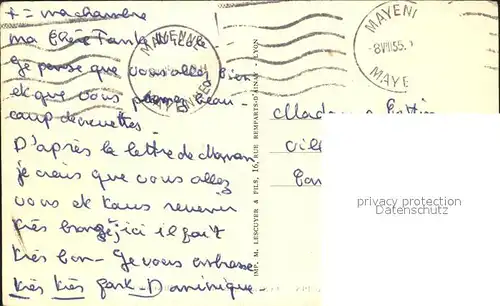 + = ma chambre
ma chère Tante
Je pense que vous allez bien
et que vous prenez beau-
coup de
D'après la lettre de Maman
je crois que vous allez
vous et Kaus revenir
très bronzés, ici il fait
très bon - Je vous embrasse
très très fort - Dominique -
MAYENNE
MAYENNE
-8 VIII 55
MAYE
IMP. M. LESCUYER & FILS, 16, RUE REMPARTS-D'AINAY - LYON
Madame
Vill
privacy protection
Datenschutz